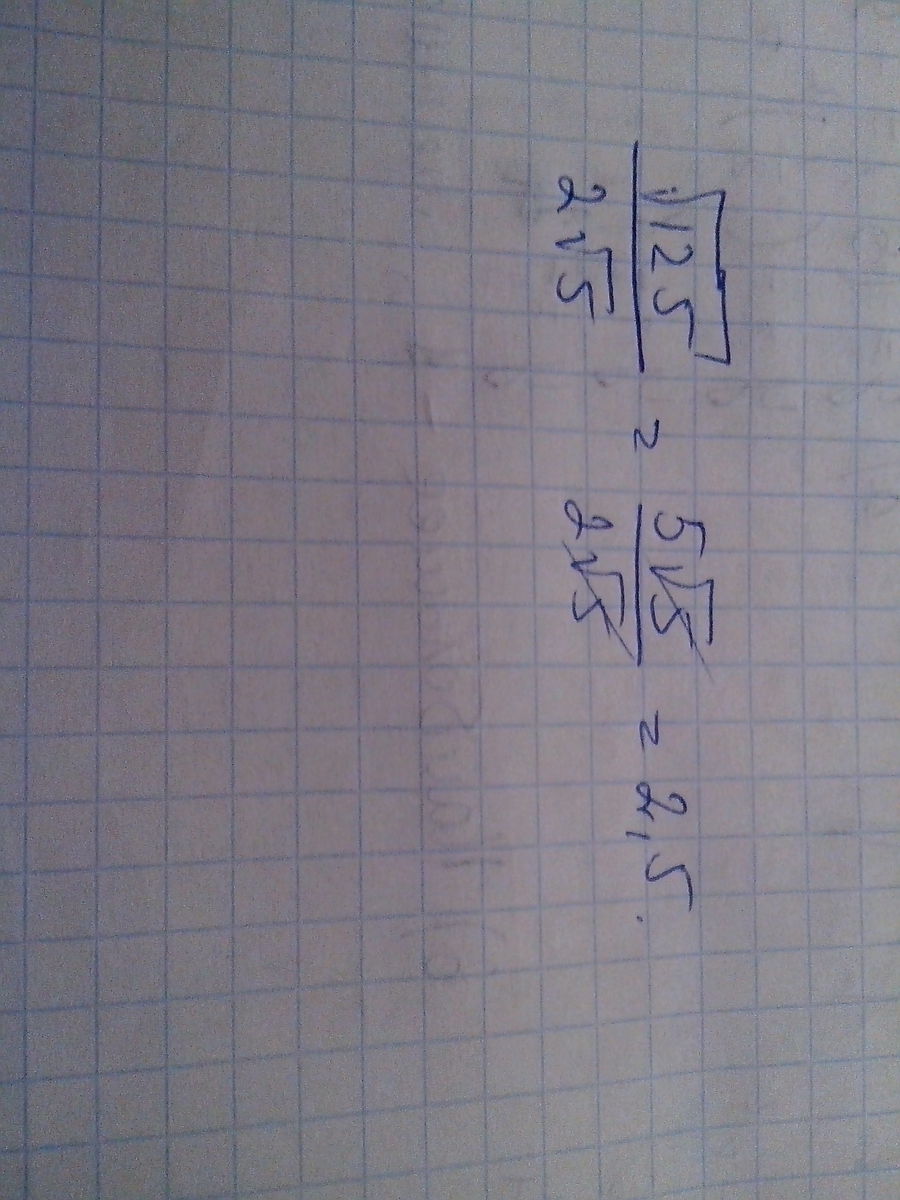 √125 / 2√5 = 5√5 / 2√5 = 2,5.